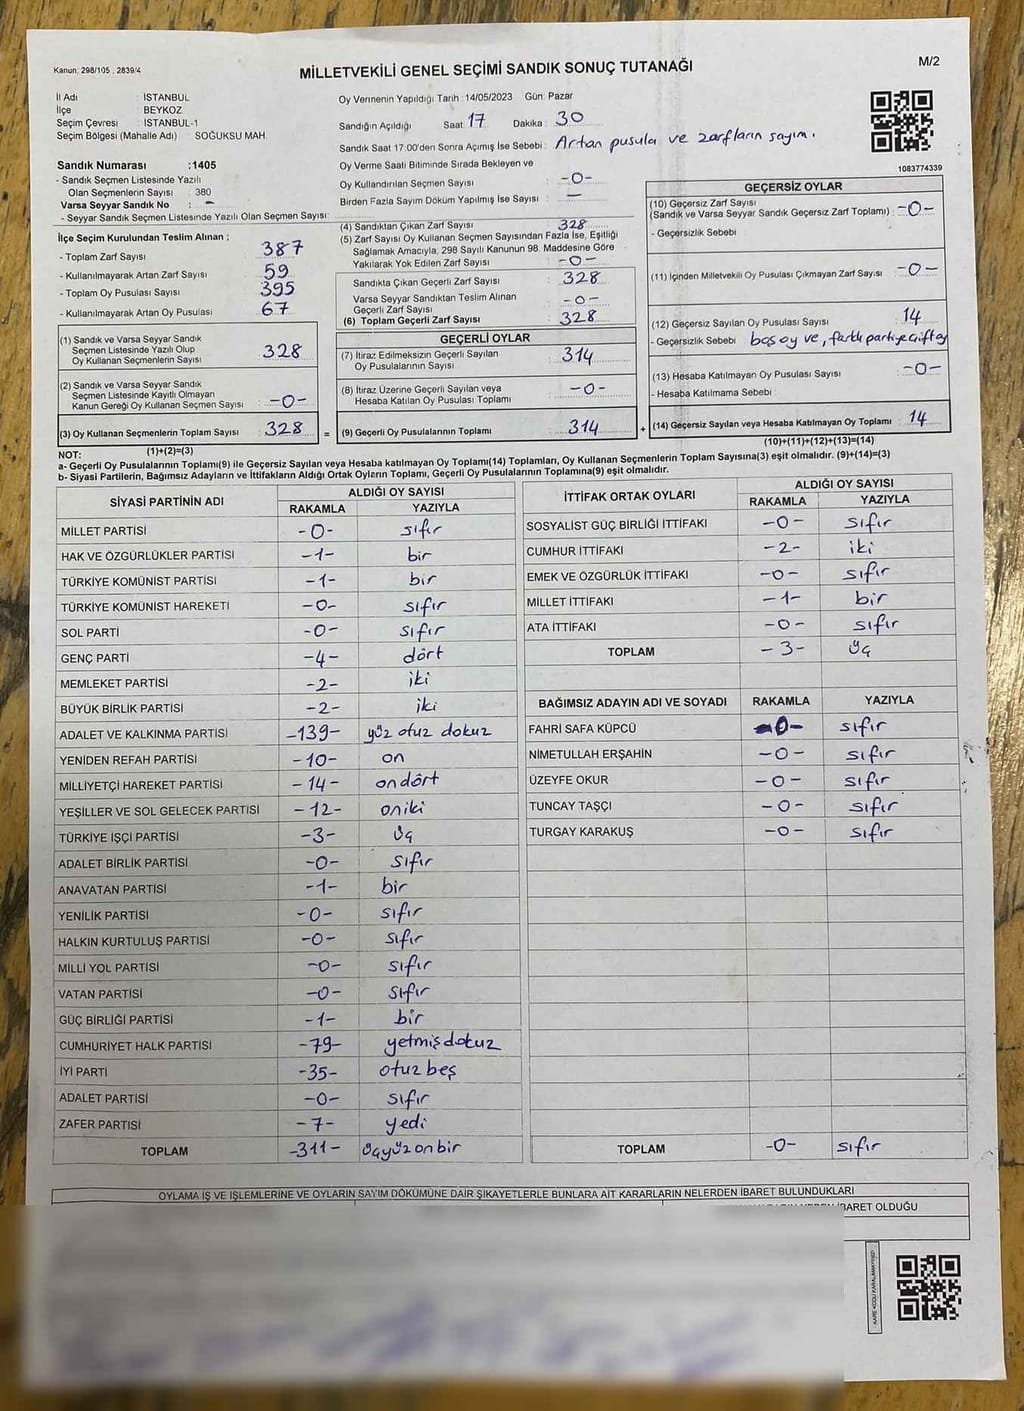 Kanun: 298/105 , 2839/4
M/2
MİLLETVEKİLİ GENEL SEÇİMİ SANDIK SONUÇ TUTANAĞI
İl Adı : İSTANBUL
İlçe BEYKOZ
Seçim Çevresi : İSTANBUL-1
Seçim Bölgesi (Mahalle Adı) : SOĞUKSU MAH.
Sandık Numarası :1405
- Sandık Seçmen Listesinde Yazılı
Olan Seçmenlerin Sayısı : 380
Varsa Seyyar Sandık No : -
- Seyyar Sandık Seçmen Listesinde Yazılı Olan Seçmen Sayısı:
Oy Vermenin Yapıldığı Tarih :14/05/2023 Gün: Pazar
Sandığın Açıldığı Saat: 17 Dakika : 30
Sandık Saat 17:00'den Sonra Açımış İse Sebebi : Artan pusula ve zarfların sayım.
Oy Verme Saati Bitiminde Sırada Bekleyen ve
Oy Kullandırılan Seçmen Sayısı : -0-
Birden Fazla Sayım Döküm Yapılmış İse Sayısı : -
1083774339
İlçe Seçim Kurulundan Teslim Alınan ;
- Toplam Zarf Sayısı : 387
- Kullanılmayarak Artan Zarf Sayısı : 59
- Toplam Oy Pusulası Sayısı : 395
- Kullanılmayarak Artan Oy Pusulası : 67
(1) Sandık ve Varsa Seyyar Sandık
Seçmen Listesinde Yazılı Olup
Oy Kullanan Seçmenlerin Sayısı : 328
(2) Sandık ve Varsa Seyyar Sandık
Seçmen Listesinde Kayıtlı Olmayan
Kanun Gereği Oy Kullanan Seçmen Sayısı : -0-
(3) Oy Kullanan Seçmenlerin Toplam Sayısı : 328 =
(1)+(2)=(3)
(4) Sandıktan Çıkan Zarf Sayısı : 328
(5) Zarf Sayısı Oy Kullanan Seçmen Sayısından Fazla İse, Eşitliği
Sağlamak Amacıyla, 298 Sayılı Kanunun 98. Maddesine Göre
Yakılarak Yok Edilen Zarf Sayısı : -0-
Sandıkta Çıkan Geçerli Zarf Sayısı : 328
Varsa Seyyar Sandıktan Teslim Alınan
Geçerli Zarf Sayısı : -0-
(6) Toplam Geçerli Zarf Sayısı : 328
GEÇERLİ OYLAR
(7) İtiraz Edilmeksizin Geçerli Sayılan
Oy Pusulalarının Sayısı : 314
(8) İtiraz Üzerine Geçerli Sayılan veya
Hesaba Katılan Oy Pusulası Toplamı : -0-
(9) Geçerli Oy Pusulalarının Toplamı : 314 +
GEÇERSİZ OYLAR
(10) Geçersiz Zarf Sayısı
(Sandık ve Varsa Seyyar Sandık Geçersiz Zarf Toplamı) : -0-
- Geçersizlik Sebebi :
(11) İçinden Milletvekili Oy Pusulası Çıkmayan Zarf Sayısı : -0-
(12) Geçersiz Sayılan Oy Pusulası Sayısı : 14
- Geçersizlik Sebebi : boş oy ve, farklı partiye çift oy
(13) Hesaba Katılmayan Oy Pusulası Sayısı : -0-
- Hesaba Katılmama Sebebi :
(14) Geçersiz Sayılan veya Hesaba Katılmayan Oy Toplamı : 14
(10)+(11)+(12)+(13)=(14)
NOT:
a- Geçerli Oy Pusulalarının Toplamı(9) ile Geçersiz Sayılan veya Hesaba katılmayan Oy Toplamı(14) Toplamları, Oy Kullanan Seçmenlerin Toplam Sayısına(3) eşit olmalıdır. (9)+(14)=(3)
b- Siyasi Partilerin, Bağımsız Adayların ve İttifakların Aldığı Ortak Oyların Toplamı, Geçerli Oy Pusulalarının Toplamına(9) eşit olmalıdır.
SİYASİ PARTİNİN ADI ALDIĞI OY SAYISI
RAKAMLA YAZIYLA
MİLLET PARTİSİ -0- sıfır
HAK VE ÖZGÜRLÜKLER PARTİSİ -1- bir
TÜRKİYE KOMÜNİST PARTİSİ -1- bir
TÜRKİYE KOMÜNİST HAREKETİ -0- sıfır
SOL PARTİ -0- sıfır
GENÇ PARTİ -4- dört
MEMLEKET PARTİSİ -2- iki
BÜYÜK BİRLİK PARTİSİ -2- iki
ADALET VE KALKINMA PARTİSİ -139- yüz otuz dokuz
YENİDEN REFAH PARTİSİ -10- on
MİLLİYETÇİ HAREKET PARTİSİ -14- ondört
YEŞİLLER VE SOL GELECEK PARTİSİ -12- oniki
TÜRKİYE İŞÇİ PARTİSİ -3- üç
ADALET BİRLİK PARTİSİ -0- sıfır
ANAVATAN PARTİSİ -1- bir
YENİLİK PARTİSİ -0- sıfır
HALKIN KURTULUŞ PARTİSİ -0- sıfır
MİLLİ YOL PARTİSİ -0- sıfır
VATAN PARTİSİ -0- sıfır
GÜÇ BİRLİĞİ PARTİSİ -1- bir
CUMHURİYET HALK PARTİSİ -79- yetmiş dokuz
İYİ PARTİ -35- otuz beş
ADALET PARTİSİ -0- sıfır
ZAFER PARTİSİ -7- yedi
TOPLAM -311- üçyüz on bir
İTTİFAK ORTAK OYLARI ALDIĞI OY SAYISI
RAKAMLA YAZIYLA
SOSYALİST GÜÇ BİRLİĞİ İTTİFAKI -0- sıfır
CUMHUR İTTİFAKI -2- iki
EMEK VE ÖZGÜRLÜK İTTİFAKI -0- sıfır
MİLLET İTTİFAKI -1- bir
ATA İTTİFAKI -0- sıfır
TOPLAM -3- üç
BAĞIMSIZ ADAYIN ADI VE SOYADI RAKAMLA YAZIYLA
FAHRİ SAFA KÜPCÜ -0- sıfır
NİMETULLAH ERŞAHİN -0- sıfır
ÜZEYFE OKUR -0- sıfır
TUNCAY TAŞÇI -0- sıfır
TURGAY KARAKUŞ -0- sıfır
TOPLAM -0- sıfır
OYLAMA İŞ VE İŞLEMLERİNE VE OYLARIN SAYIM DÖKÜMÜNE DAİR ŞİKAYETLERLE BUNLARA AİT KARARLARIN NELERDEN İBARET BULUNDUKLARI
İBARET OLDUĞU
KARE KODU KARALAMAYINIZ!